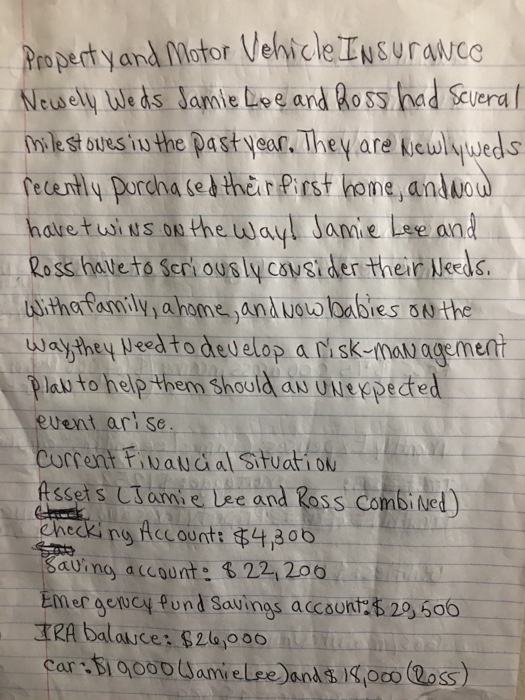 Property and Motor Vehicle Insurance
Newely Weds Jamie Lee and Ross had Several
milestones in the past year. They are Newlyweds
recently purchased their first home, and now
have twins on the way! Jamie Lee and
Ross have to seriously consider their Needs.
With a family, a home, and now babies on the
way, they Need to develop a risk-management
plan to help them should an unexpected
event arise.
Current Financial Situation
Assets (Jamie Lee and Ross Combined)
Checking Account: $4,300
Saving account: $22,200
Emergency fund Savings account: $20,500
IRA balance: $26,000
Car: $19,000 (Jamie Lee) and $18,000 (Ross)